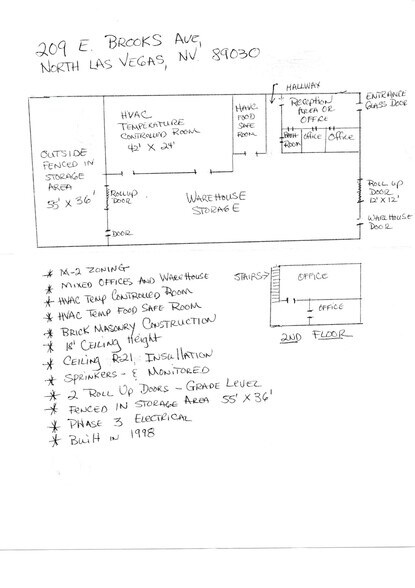 209 E. BROOKS AVE,
NORTH LAS VEGAS, NV. 89030
HALLWAY
HVAC
TEMPERATURE
CONTROLLED ROOM
42' X 24'
HAVC
FOOD
SAFE
ROOM
RECEPTION
AREA OR
OFFICE
BATH
ROOM
OFFICE
OFFICE
ENTRANCE
GLASS DOOR
OUTSIDE
FENCED IN
STORAGE
AREA
55' X 36'
ROLLUP
DOOR
DOOR
WAREHOUSE
STORAGE
ROLL UP
DOOR
12' X 12'
WAREHOUSE
DOOR
* M-2 ZONING
* MIXED OFFICES AND WAREHOUSE
* HVAC TEMP CONTROLLED ROOM
* HVAC TEMP FOOD SAFE ROOM
* BRICK MASONRY CONSTRUCTION
* 18' CEILING HEIGHT
* CEILING R-21 INSULLATION
* SPRINKERS - & MONITORED
* 2 ROLL UP DOORS - GRADE LEVEL
* FENCED IN STORAGE AREA 55' X 36'
* PHASE 3 ELECTRICAL
* BUILT IN 1998
STAIRS
OFFICE
OFFICE
2ND FLOOR